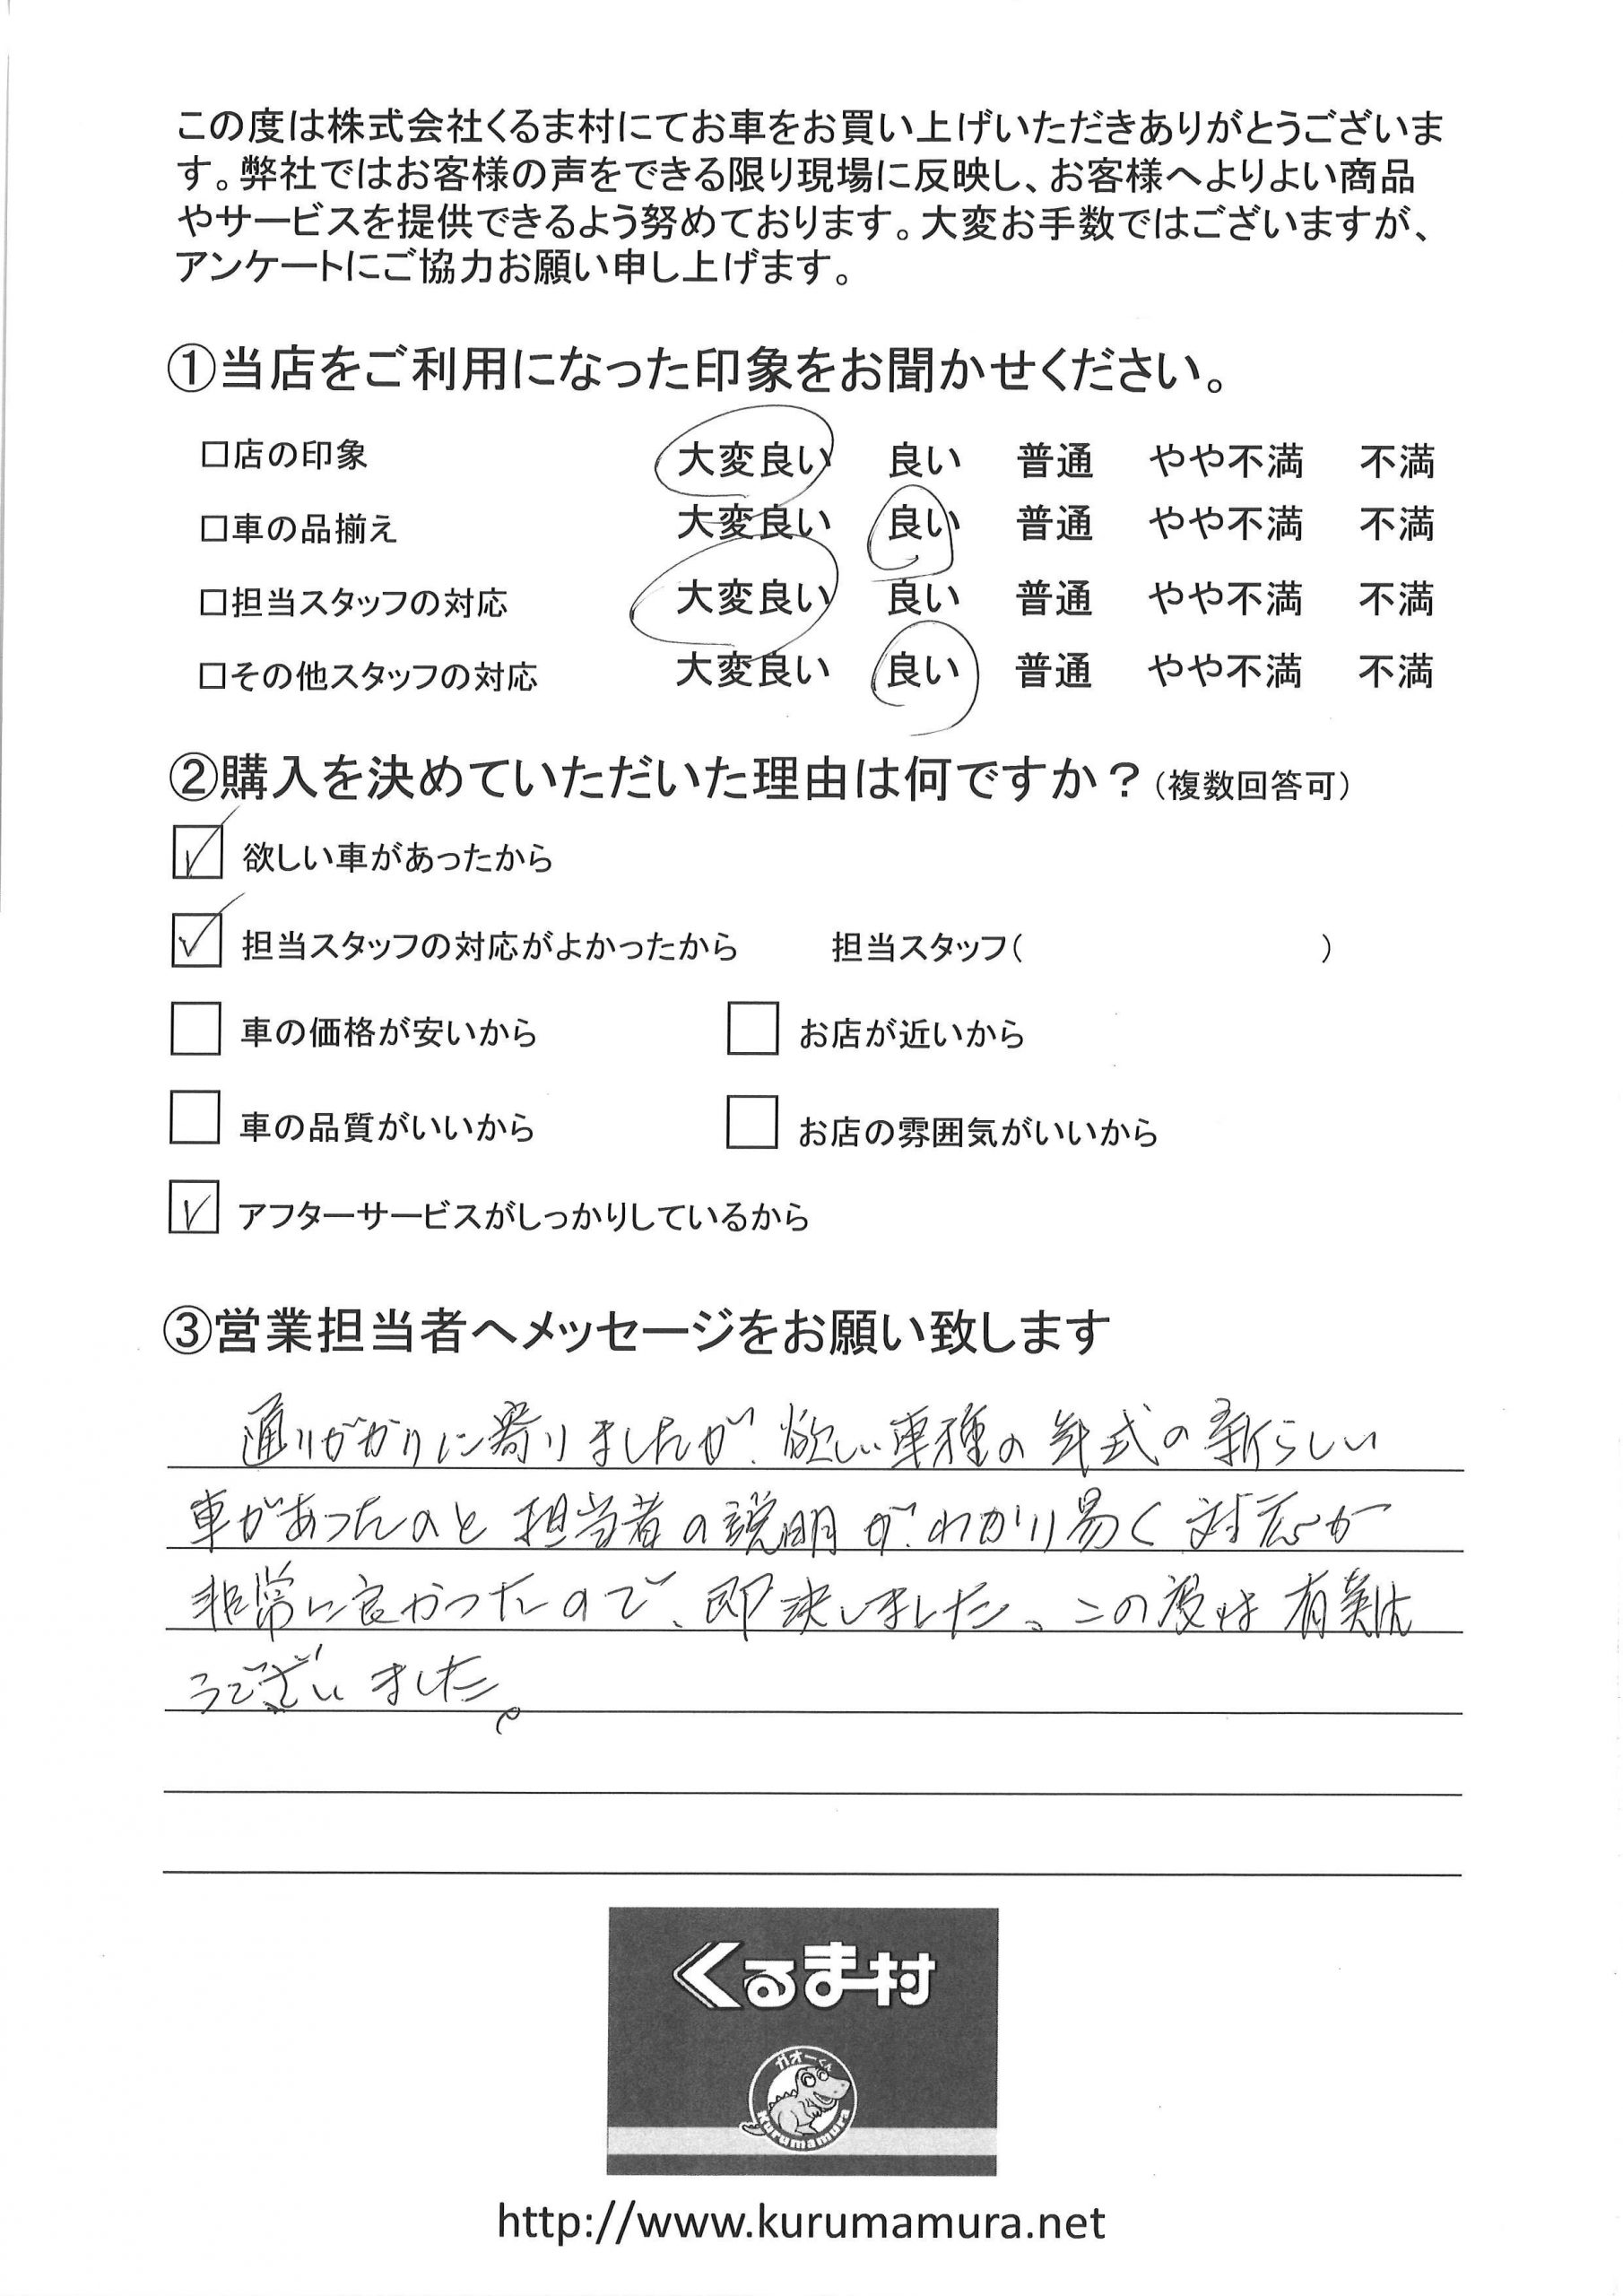 この度は株式会社くるま村にてお車をお買い上げいただきありがとうございま
す。弊社ではお客様の声をできる限り現場に反映し、お客様へよりよい商品
やサービスを提供できるよう努めております。大変お手数ではございますが、
アンケートにご協力お願い申し上げます。
①当店をご利用になった印象をお聞かせください。
□店の印象 大変良い 良い 普通 やや不満 不満
□車の品揃え 大変良い 良い 普通 やや不満 不満
□担当スタッフの対応 大変良い 良い 普通 やや不満 不満
□その他スタッフの対応 大変良い 良い 普通 やや不満 不満
②購入を決めていただいた理由は何ですか？（複数回答可）
欲しい車があったから
担当スタッフの対応がよかったから 担当スタッフ（ ）
車の価格が安いから お店が近いから
車の品質がいいから お店の雰囲気がいいから
アフターサービスがしっかりしているから
③営業担当者へメッセージをお願い致します
通りがかりに寄りましたが、欲しい車種の年式の新らしい
車があったのと担当者の説明が、わかり易く対応が
非常に良かったので、即決しました。この度は有難た
うございました。
くるま村
ガオーくん
Kurumamura
http://www.kurumamura.net